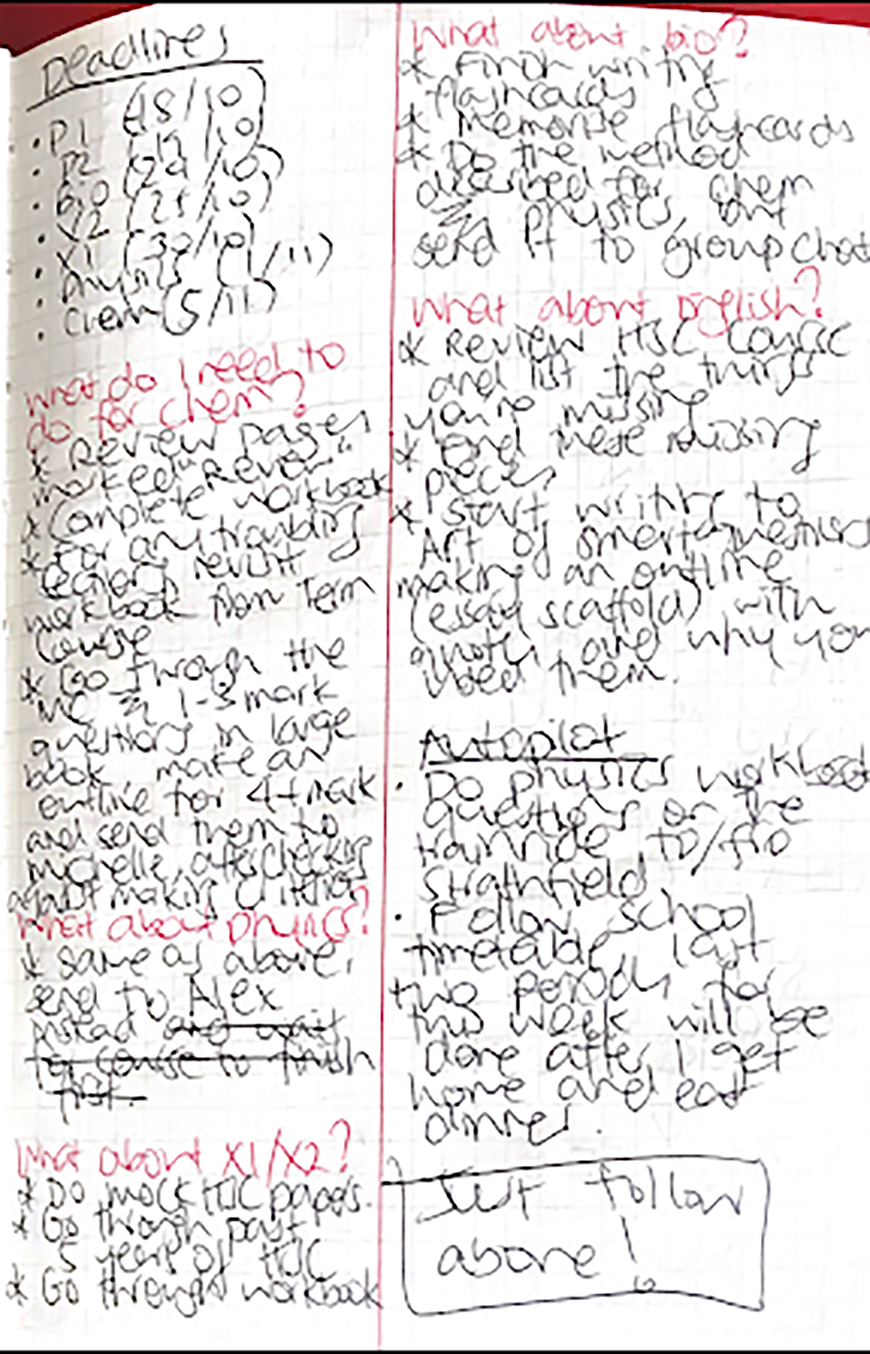 Deadlines
· P1 (18/10)
· P2 (19/10)
· Bio (24/10)
· X2 (25/10)
· X1 (30/10)
· Physics (1/11)
· Chem (5/11)
What do I need to
do for chem?
* Review pages
marked "Review"
* Complete workbook
* For any troubling
sections revisit
workbook from Term
Course
* Go through the
MC 1-3 mark
questions in large
book make an
outline for 4+ mark
and send them to
Michelle, after checking
against marking criterion
What about physics?
* same as above,
send to Alex
instead and wait
for course to finish
first.
What about X1/X2?
* Do mock HSC papers.
* Go through past
5 years of HSC
* Go through workbook
What about bio?
* Finish writing
flashcards
* Memorise flashcards
* Do the method
described for chem
physics, but
send it to group chat
What about English?
* Review HSC Course
and list the things
you're missing
* these missing
pieces
* Start writing to
Art of Smart questions
making an outline
(essay scaffold) with
quotes and why you
used them.
Autopilot
· Do physics workbook
questions on the
train ride to/fro
Strathfield
· Follow school
timetable, last
two periods for
this week will be
done after I get
home and eat
dinner.
Just follow
above!